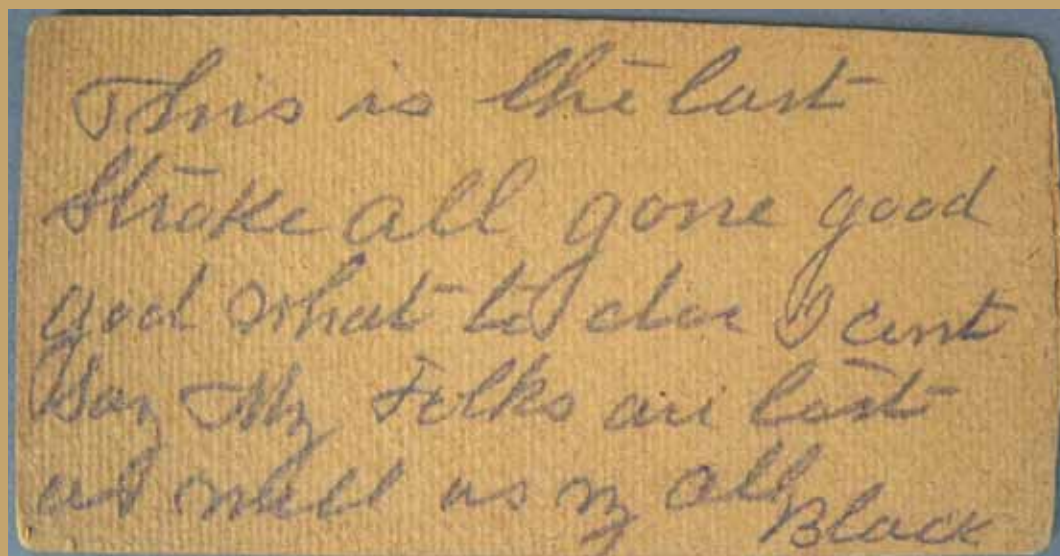 This is the last
Stroke all gone good
god what to doe I cant
Say My Folks are lost
as well as my all
Black